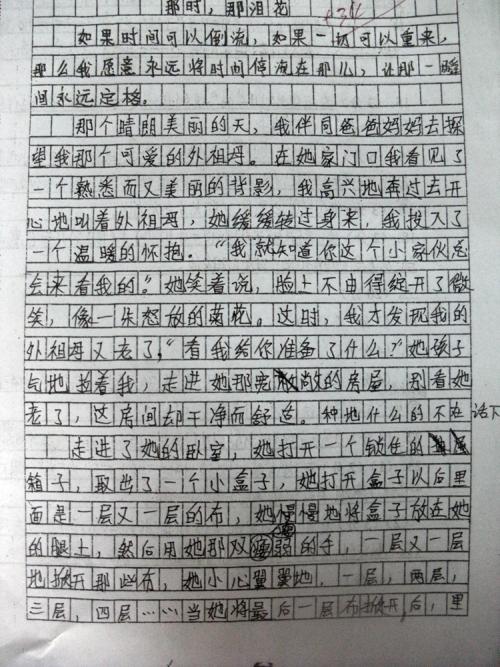 那时，那泪花
如果时间可以倒流，如果一切可以重来，
那么我愿意永远将时间停流在那儿，让那一瞬
间永远定格。
那个晴朗美丽的天，我伴同爸爸妈妈去探
望我那个可爱的外祖母。在她家门口我看见了
一个熟悉而又美丽的背影，我高兴地奔过去开
心地叫着外祖母，她缓缓转过身来，我投入了
一个温暖的怀抱。“我就知道你这个小家伙总
会来看我的。”她笑着说，脸上不由得绽开了微
笑，像一朵怒放的菊花。这时，我才发现我的
外祖母又老了，“看我给你准备了什么？”她孩子
气地拉着我，走进她那宽敞的房屋，别看她
老了，这房间却干净而舒适。种地什么的不在话下
走进了她的卧室，她打开一个锁住的
箱子，取出了一个小盒子，她打开盒子以后里
面是一层又一层的布，她慢慢地将盒子放在她
的腿上，然后用她那双瘦弱的手，一层又一层
地掀开那些布，她小心翼翼地，一层，两层，
三层，四层……当她将最后一层布掀开后，里